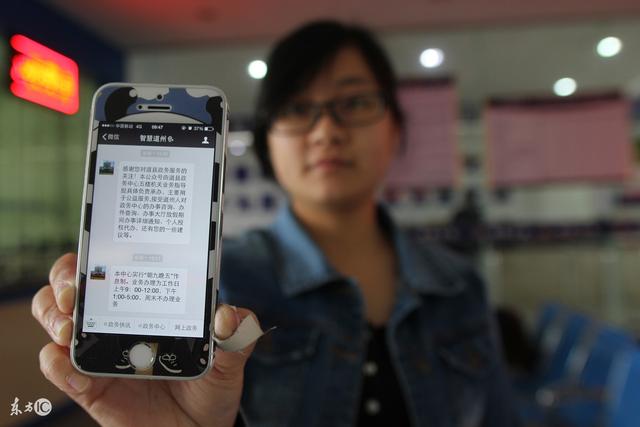 中国移动 4G 09:47 37%
微信 智慧道州
感谢您对道县政务服务的
关注！本公众号由道县政
务中心五楼机关业务指导
股具体负责承办，主要用
于公益服务,接受道州人对
政务中心的办事咨询、办
件查询、办事大厅放假期
间办事详细通知、个人授
权代办、还有您的一些建
议等。
本中心实行"朝九晚五"作
息制。业务办理为工作日
上午9：00-12:00，下午
1:00-5:00，周末不办理业
务
政务快讯 政务中心 网上政务
东方IC